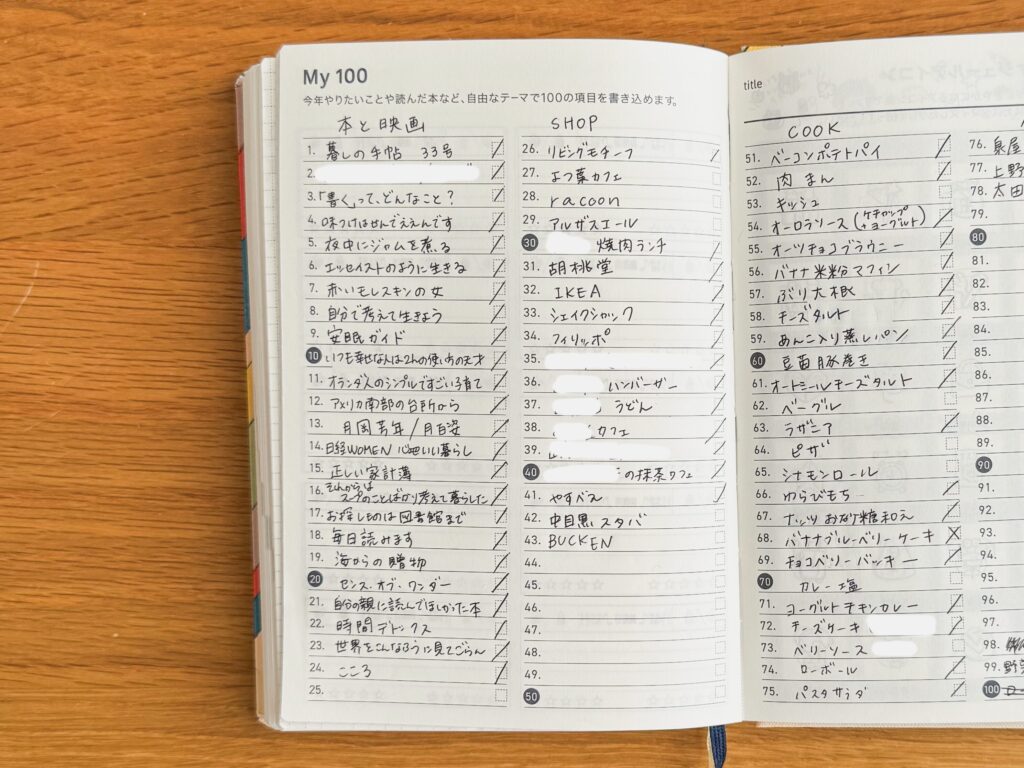 My 100
今年やりたいことや読んだ本など、自由なテーマで100の項目を書き込めます。
本と映画
1. 暮しの手帖 33号
2.
3.「書く」って、どんなこと?
4. 味つけはせんでええんです
5. 夜中にジャムを煮る
6. エッセイストのように生きる
7. 赤いモレスキンの女
8. 自分で考えて生きよう
9. 安眠ガイド
10 いつも幸せな人は2人の使い方の天才
11. オランダ人のシンプルですごい子育て
12. アメリカ南部の台所から
13. 月国芳年/月百姿
14. 日経WOMEN 心地いい暮らし
15. 正しい家計簿
16. それからはスープのことばかり考えて暮らした
17. お探しものは図書館まで
18. 毎日読みます
19. 海からの贈物
20 センス・オブ・ワンダー
21. 自分の親に読んでほしかった本
22. 時間デトックス
23. 世界をこんなふうに見てごらん
24. こころ
25.
SHOP
26. リビングモチーフ
27. よつ葉カフェ
28. racoon
29. アルザスエール
30 焼肉ランチ
31. 胡桃堂
32. IKEA
33. シェイクシャック
34. フィリッポ
35.
36. ハンバーガー
37. うどん
38. カフェ
39.
40 の抹茶カフェ
41. やすべえ
42. 中目黒 スタバ
43. BUCKEN
44.
45.
46.
47.
48.
49.
50
title
COOK
51. ベーコンポテトパイ
52. 肉まん
53. キッシュ
54. オーロラソース (ケチャップ+ヨーグルト)
55. オーツチョコブラウニー
56. バナナ米粉マフィン
57. ぶり大根
58. チーズタルト
59. あんこ入り蒸しパン
60 豆苗豚巻き
61. オートミールチーズタルト
62. ベーグル
63. ラザニア
64. ピザ
65. シナモンロール
66. わらびもち
67. ナッツ 砂糖和え
68. バナナブルーベリーケーキ
69. チョコベリーバッキー
70 カレー塩
71. ヨーグルトチキンカレー
72. チーズケーキ
73. ベリーソース
74. ローボール
75. パスタサラダ
76. 泉屋
77. 上野
78. 太田
79.
80
81.
82.
83.
84.
85.
86.
87.
88.
89.
90
91.
92.
93.
94.
95.
96.
97.
98.
99. 野
100